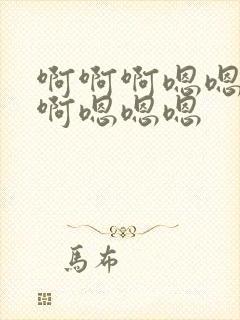 啊啊啊嗯嗯
啊嗯嗯嗯
馬布